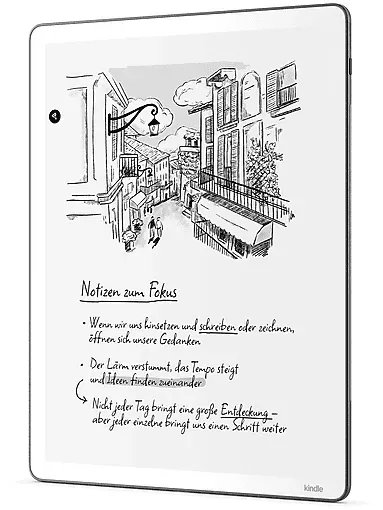 Notizen zum Fokus
• Wenn wir uns hinsetzen und schreiben oder zeichnen,
öffnen sich unsere Gedanken
• Der Lärm verstummt, das Tempo steigt
und Ideen finden zueinander
Nicht jeder Tag bringt eine große Entdeckung –
aber jeder einzelne bringt uns einen Schritt weiter
kindle